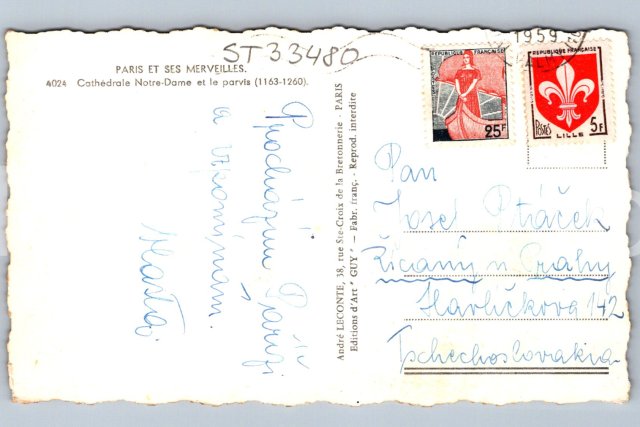 ST33480
PARIS ET SES MERVEILLES.
4024 Cathédrale Notre-Dame et le parvis (1163-1260).
Procházím Paříž
a vzpomínám.
André LECONTE, 38, rue Ste-Croix de la Bretonnerie - PARIS
Editions d'Art "GUY" - Fabr. franç. - Reprod. interdite
1959
REPUBLIQUE FRANÇAISE
25F
REPUBLIQUE FRANÇAISE
POSTES
5F
LILLE
Pan
Josef Ptáček
Říčany u Prahy
Havlíčkova 142
Tschechoslovakia